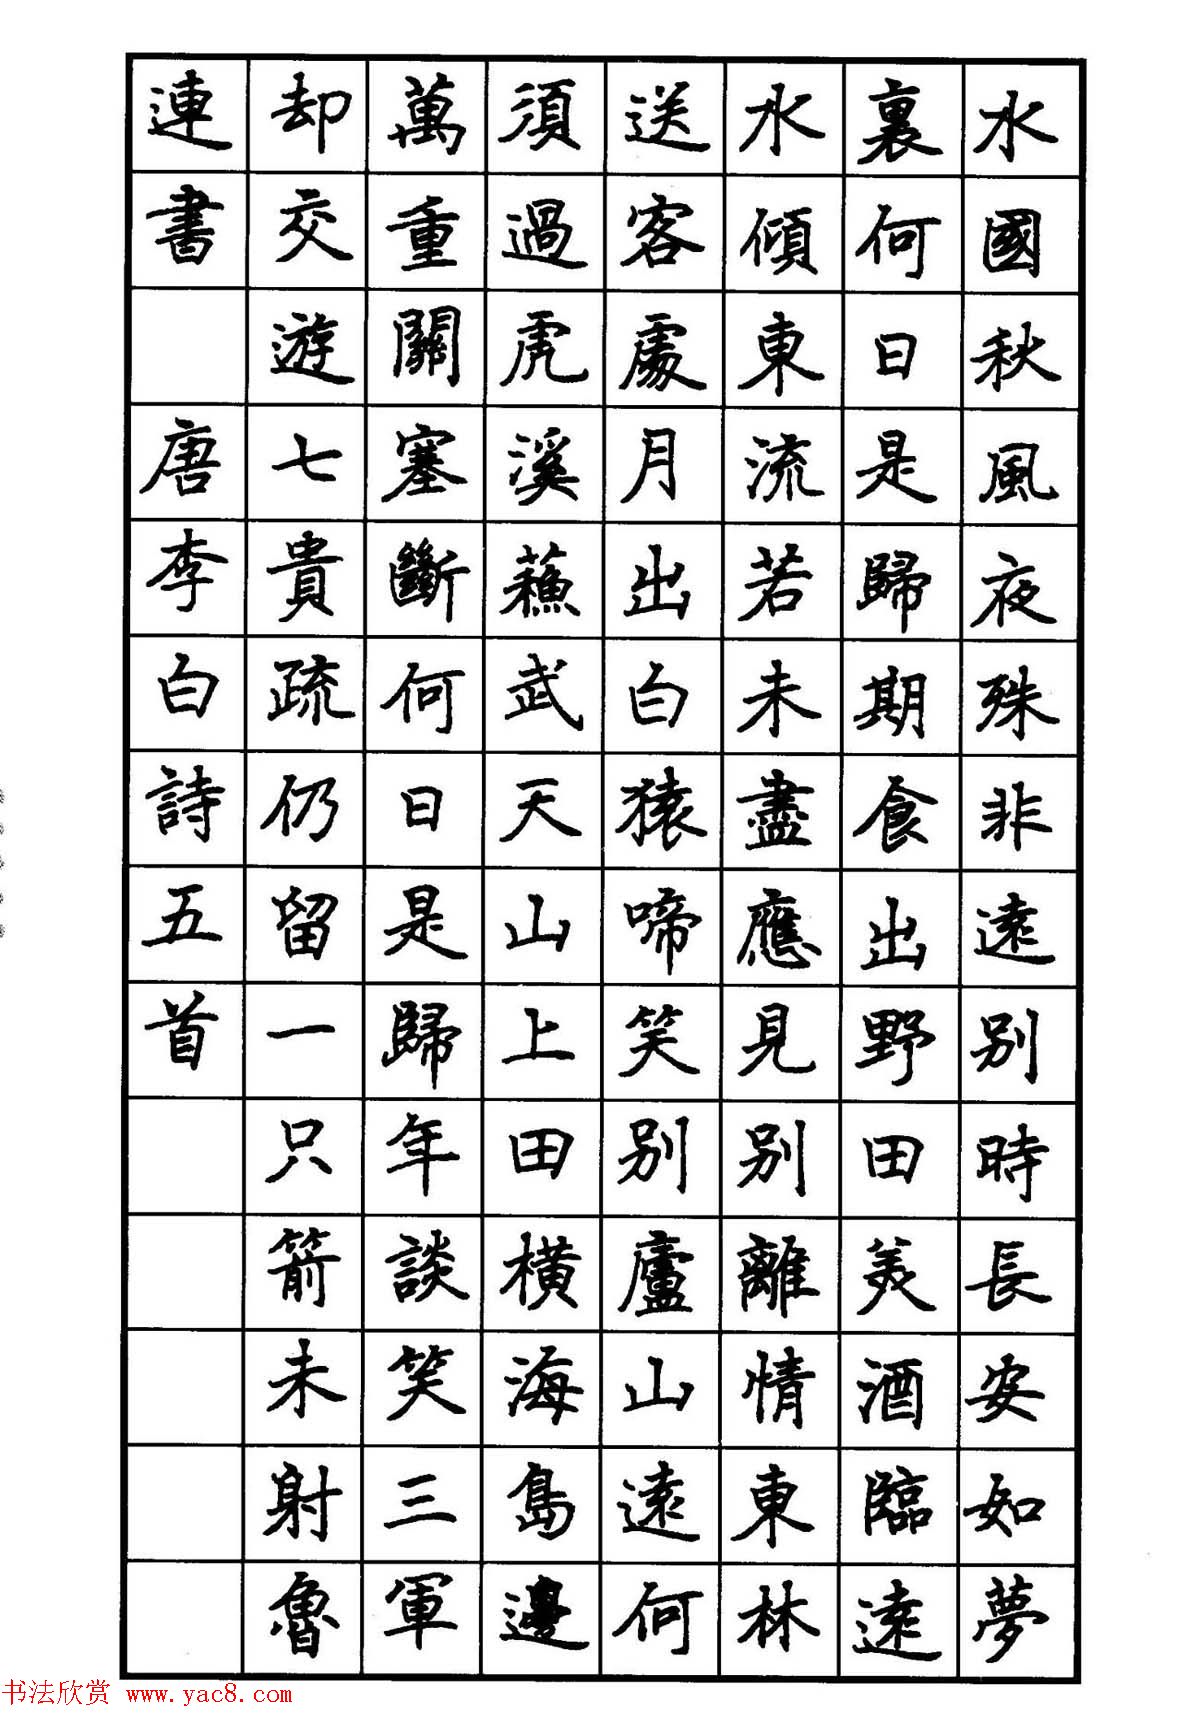 水國秋風夜殊非遠別時長安如夢
裏何日是歸期食出野田美酒臨遠
水傾東流若未盡應見別離情東林
送客處月出白猿啼笑別廬山遠何
須過虎溪蘇武天山上田橫海島邊
萬重關塞斷何日是歸年談笑三軍
却交遊七貴疏仍留一只箭未射魯
連書 唐李白詩五首
书法欣赏 www.yac8.com